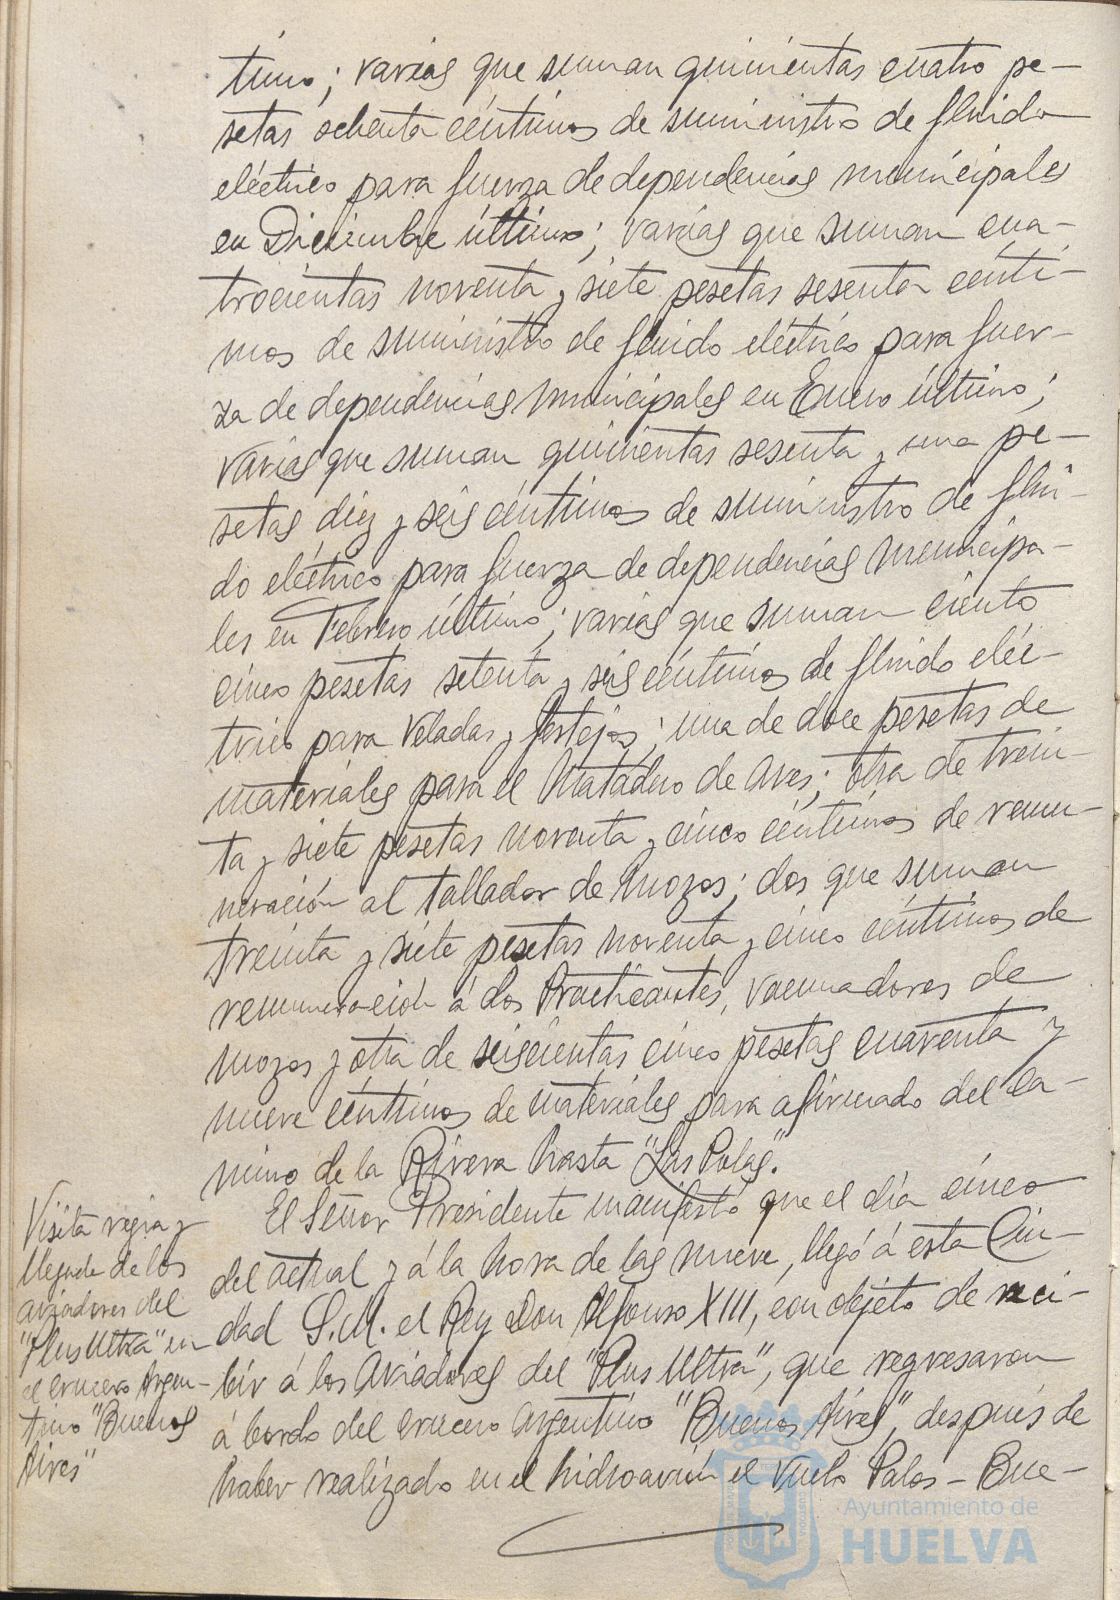 timo; varias que suman quinientas cuatro pe-
setas ochenta céntimos de suministro de fluido
eléctrico para fuerza de dependencias municipales
en Diciembre último; varias que suman cua-
trocientas noventa y siete pesetas sesenta cénti-
mos de suministro de fluido eléctrico para fuer-
za de dependencias municipales en Enero último;
varias que suman quinientas sesenta y una pe-
setas diez y seis céntimos de suministro de flui-
do eléctrico para fuerza de dependencias municipa-
les en Febrero último; varias que suman ciento
cinco pesetas setenta y seis céntimos de fluido eléc-
trico para Veladas y festejos; una de doce pesetas de
materiales para el Matadero de Aves; otra de trein-
ta y siete pesetas noventa y cinco céntimos de remu-
neración al tallador de mozos; dos que suman
treinta y siete pesetas noventa y cinco céntimos de
remuneración á dos Practicantes, vacunadores de
mozos y otra de seiscientas cinco pesetas cuarenta y
nueve céntimos de materiales para afirmado del ca-
mino de la Rivera hasta "Las Polas".
El Señor Presidente manifestó que el día cinco
del actual y á la hora de las nueve, llegó á esta Ciu-
dad S.M. el Rey Don Alfonso XIII, con objeto de reci-
bir á los Aviadores del "Plus Ultra", que regresaron
á bordo del crucero argentino "Buenos Aires", después de
haber realizado en el hidroavión el vuelo Palos - Bue-
Visita regia y
llegada de los
aviadores del
"Plus Ultra" en
el crucero Argen-
tino "Buenos
Aires"
Ayuntamiento de
HUELVA